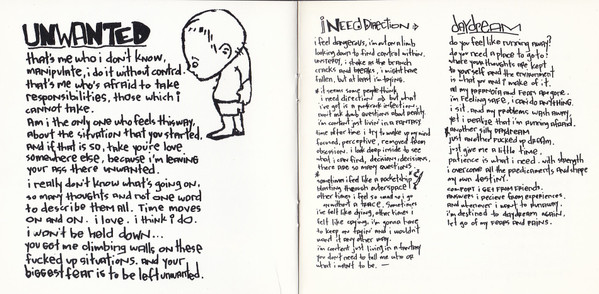 UNWANTED
that's me who i don't know,
manipulate, i do it without control.
that's me who's afraid to take
responsibilities, those which i
cannot take.
Am i the only one who feels this way,
about the situation that you started.
and if that is so, take you're love
somewhere else, because i'm leaving
your ass there unwanted.
i really don't know what's going on,
so many thoughts and not one word
to describe them all. Time moves
on and on. i love. i think i do.
i won't be hold down...
you got me climbing walls on these
fucked up situations. and your
biggest fear is to be left unwanted.
i NEED DiRECTiON
i feel dangerous, i'm out on a limb
looking down to find control within.
unsteady, i shake as the branch
cracks and breaks, i might have
fallen, but at least i'm trying.
it seems some people think
i need direction
what
i've got is a
not dumb questions about
i'm content just livin' in a fantasy
time after time i try to wake up my mind
focused, perceptive, removed from
obsession. i look deep inside to see
what i can find, decisions, decisions,
there are so many questions.
sometimes i feel like a rocketship
blasting through outerspace!
other times i feel so
without a trace. sometimes
i've felt like dying, other times i
felt like crying. i'm gonna have
to keep on tryin' and i wouldn't
want it any other way.
i'm content just living in a fantasy
you don't need to tell me who or
what i want to be.
daydream
do you feel like running away?
do you need a place to go to?
where your thoughts are kept
to yourself and the environment
is what you make of it.
all my paranoia and fears are gone.
i'm feeling safe, i can do anything.
i sit, and my problems wash away,
yet i realize that i'm running afraid.
another silly daydream
just another fucked up dream.
just give me a little time.
patience is what i need. with strength
i overcome all the predicaments and shape
my own destiny.
comfort i get from friends.
answers i recieve from experiences.
and whenever i want to runaway.
i'm destined to daydream again.
let go of my fears and pains.